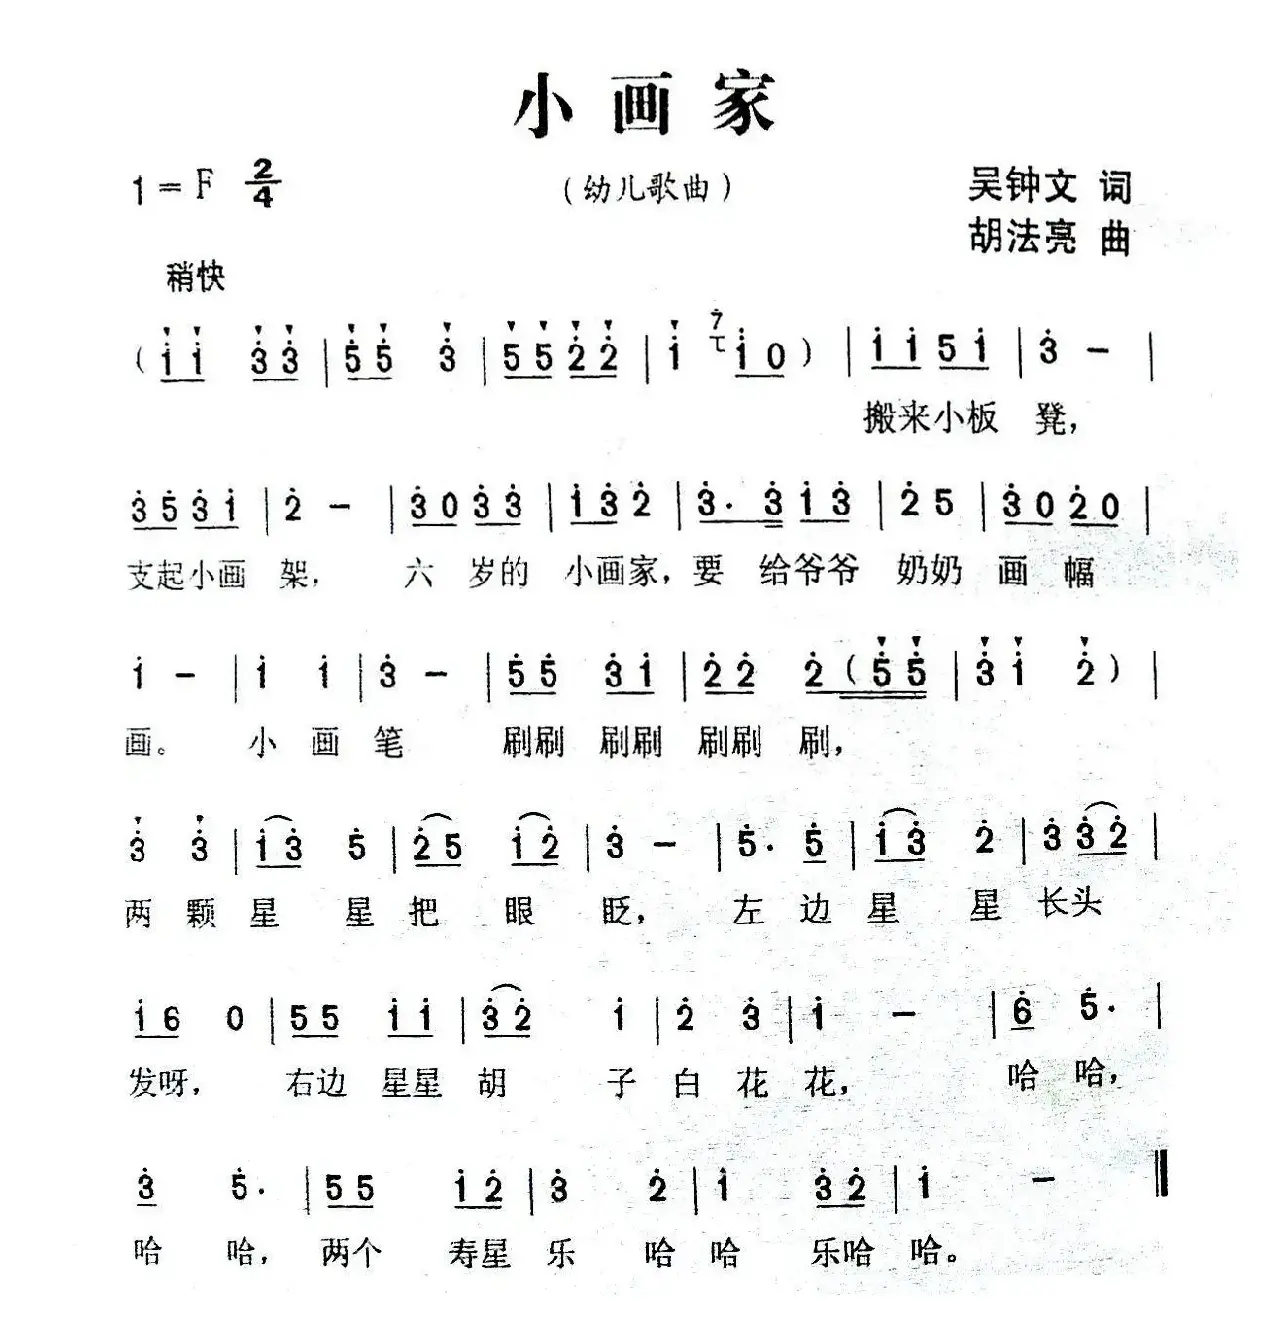 小画家
1=F 2/4
（幼儿歌曲）
吴钟文 词
胡法亮 曲
稍快
( 1 1 3 3 | 5 5 3 | 5 5 2 2 | 1 7 1 0 ) | 1 1 5 1 | 3 – |
搬来小板 凳，
3 5 3 1 | 2 – | 3 0 3 3 | 1 3 2 | 3 . 3 1 3 | 2 5 | 3 0 2 0 |
支起小画 架， 六 岁的 小画家，要 给爷爷 奶奶 画 幅
1 – | 1 1 | 3 – | 5 5 3 1 | 2 2 2 ( 5 5 | 3 1 2 ) |
画。 小 画 笔 刷刷 刷刷 刷刷 刷，
3 3 | 1 3 5 | 2 5 1 2 | 3 – | 5 . 5 | 1 3 2 | 3 3 2 |
两 颗 星 星 把 眼 眨， 左 边 星 星 长头
1 6 0 | 5 5 1 1 | 3 2 1 | 2 3 | 1 – | 6 5 . |
发呀， 右边 星星 胡 子 白 花 花， 哈 哈，
3 5 . | 5 5 1 2 | 3 2 | 1 3 2 | 1 – ‖
哈 哈， 两个 寿星 乐 哈 哈 乐哈 哈。